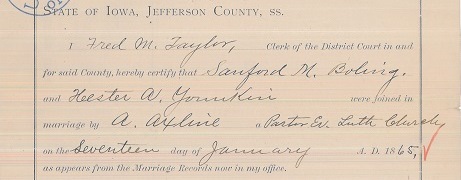 STATE OF IOWA, JEFFERSON COUNTY, SS.
I Fred M. Taylor, Clerk of the District Court in and
for said County, hereby certify that Sanford M. Boling.
and Hester A. Younkin were joined in
marriage by A. Axline a Pastor Ev. Luth Church
on the Seventeen day of January A. D. 1865,
as appears from the Marriage Records now in my office.